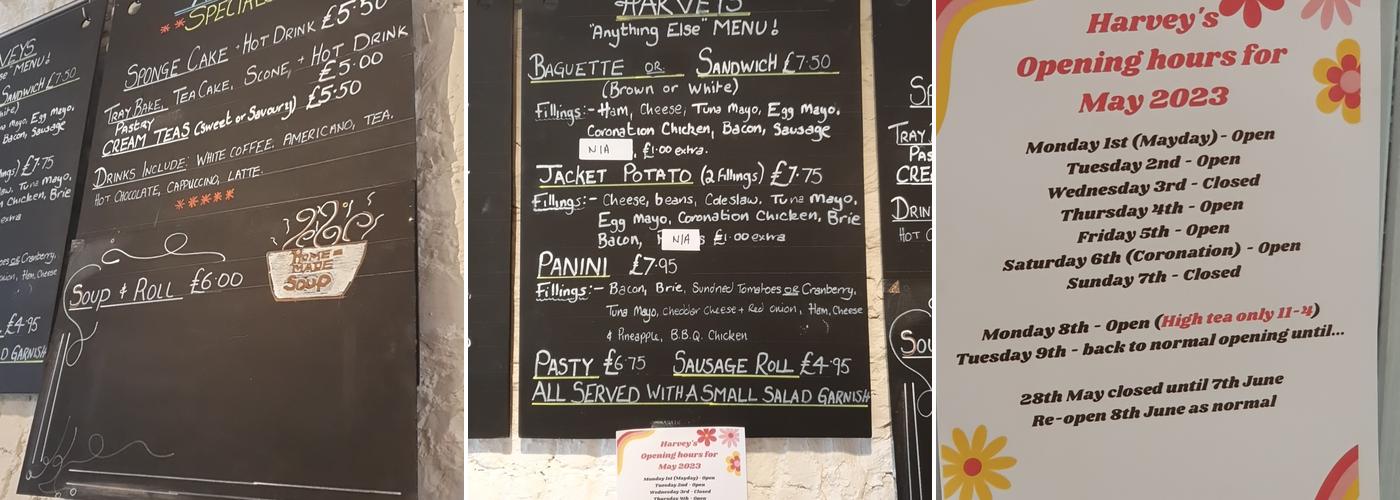 VEYS
SE" MENU!
SANDWICH £7·50
Bacon, Sausage
£7·75
Chicken, Brie
extra
Cranberry,
Ham, Cheese
£4·95
D GARNISH
**SPECIALS
SPONGE CAKE + HOT DRINK £5·50
TRAY BAKE, TEACAKE, SCONE, + HOT DRINK
Pastry £5·00
CREAM TEAS (Sweet or Savoury) £5·50
DRINKS INCLUDE: WHITE COFFEE, AMERICANO, TEA,
HOT CHOCOLATE, CAPPUCCINO, LATTE.
*****
HOME-
MADE
SOUP
SOUP & ROLL £6·00
HARVEYS
"Anything Else" MENU!
BAGUETTE OR SANDWICH £7·50
(Brown or White)
Fillings:- Ham, Cheese, Tuna Mayo, Egg Mayo,
Coronation Chicken, Bacon, Sausage
N/A , £1·00 extra.
JACKET POTATO (2 Fillings) £7·75
Fillings:- Cheese, beans, Coleslaw, Tuna Mayo,
Egg Mayo, Coronation Chicken, Brie
Bacon, N/A s £1·00 extra
PANINI £7·95
Fillings:- Bacon, Brie, Sundried Tomatoes OR Cranberry,
Tuna Mayo, cheddar Cheese + Red onion, Ham, Cheese
& Pineapple, B.B.Q. Chicken
PASTY £6·75 SAUSAGE ROLL £4·95
ALL SERVED WITH A SMALL SALAD GARNISH
Harvey's
Opening hours for
May 2023
Monday 1st (Mayday) - Open
Tuesday 2nd - Open
Wednesday 3rd - Closed
Thursday 4th - Open
SP
TRAY
PAS
CRE
DRIN
HOT C
SOU
Harvey's
Opening hours for
May 2023
Monday 1st (Mayday) - Open
Tuesday 2nd - Open
Wednesday 3rd - Closed
Thursday 4th - Open
Friday 5th - Open
Saturday 6th (Coronation) - Open
Sunday 7th - Closed
Monday 8th - Open (High tea only 11-4)
Tuesday 9th - back to normal opening until...
28th May closed until 7th June
Re-open 8th June as normal